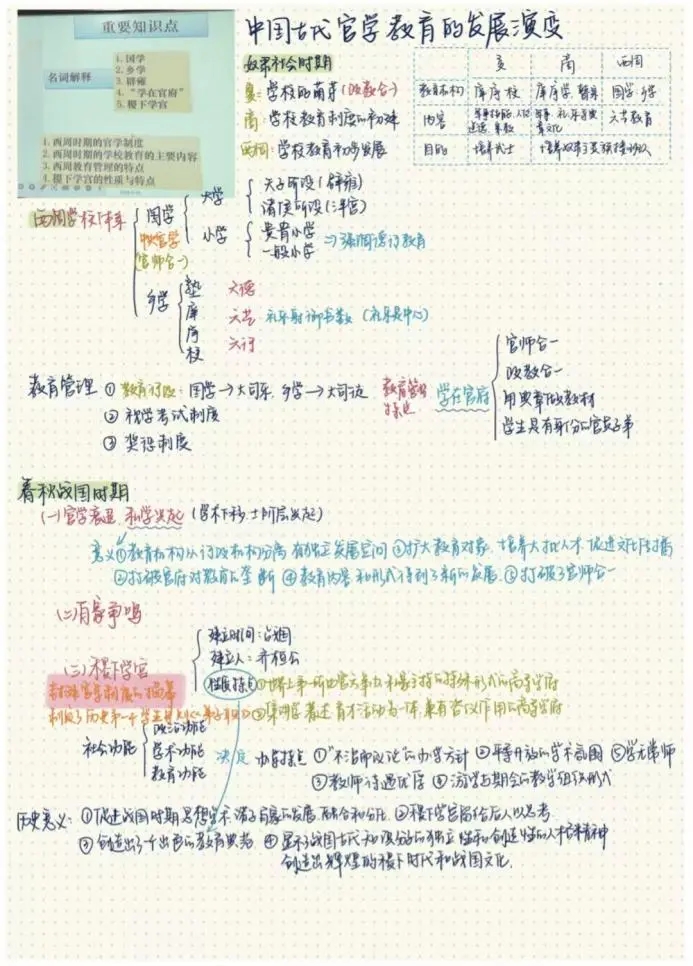 重要知识点
名词解释
1. 国学
2. 乡学
3. 辟雍
4. “学在官府”
5. 稷下学宫
1. 西周时期的官学制度
2. 西周时期的学校教育的主要内容
3. 西周教育管理的特点
4. 稷下学宫的性质与特点
中国古代官学教育的发展演变
奴隶社会时期
夏：学校的萌芽(政教合一)
商：学校教育制度的初建
西周：学校教育初步发展
夏 商 西周
教育机构 庠 序 校 庠 序 学 瞽宗 国学 乡学
内容 六艺教育
目的 培养武士
西周学校体系
国学
中央官学
(官师合一)
大学
天子所设(辟雍)
诸侯所设(泮宫)
小学
贵胄小学
一般小学
⇒强调德行教育
乡学
塾
庠
序
校
六德
六艺 礼乐射御书数(礼乐是中心)
六行
教育管理 ① 教育行政：国学→大司乐，乡学→大司徒
② 视学考试制度
③ 奖惩制度
教育管理特点
学在官府
官师合一
政教合一
用典章做教材
学生是有身份的官员子弟
春秋战国时期
(一)官学衰退 私学兴起(学术下移,士阶层兴起)
意义①教育机构从行政机构分离 有独立发展空间 ③扩大教育对象，培养大批人才，促进文化传播
②打破官府对教育的垄断 ④教育内容和形式得到了新的发展. ⑤打破了官师合一
(二)百家争鸣
(三)稷下学宫
建立时间：战国
建立人：齐桓公
性质特点
①世界上第一所由官方举办 私家主持的特殊形式的高等学府
②集讲学 著述 育才活动为一体,兼有咨议作用的高等学府
制定了历史第一个学生守则《弟子职》
社会功能
政治功能
学术功能
教育功能
决定
办学特点 ①“不治而议论”的办学方针 ②平等开放的学术氛围 ⑤学无常师
③教师待遇优厚 ④游学与期会的教学组织形式
历史意义：①促进战国时期思想学术,诸子百家的发展,融合和分化. ②稷下学宫留给后人以思考
③创造出了一个出色的教育典范 ④显示了战国古代知识分子的独立性和创造性的人格精神
创造出辉煌的稷下时代和战国文化.